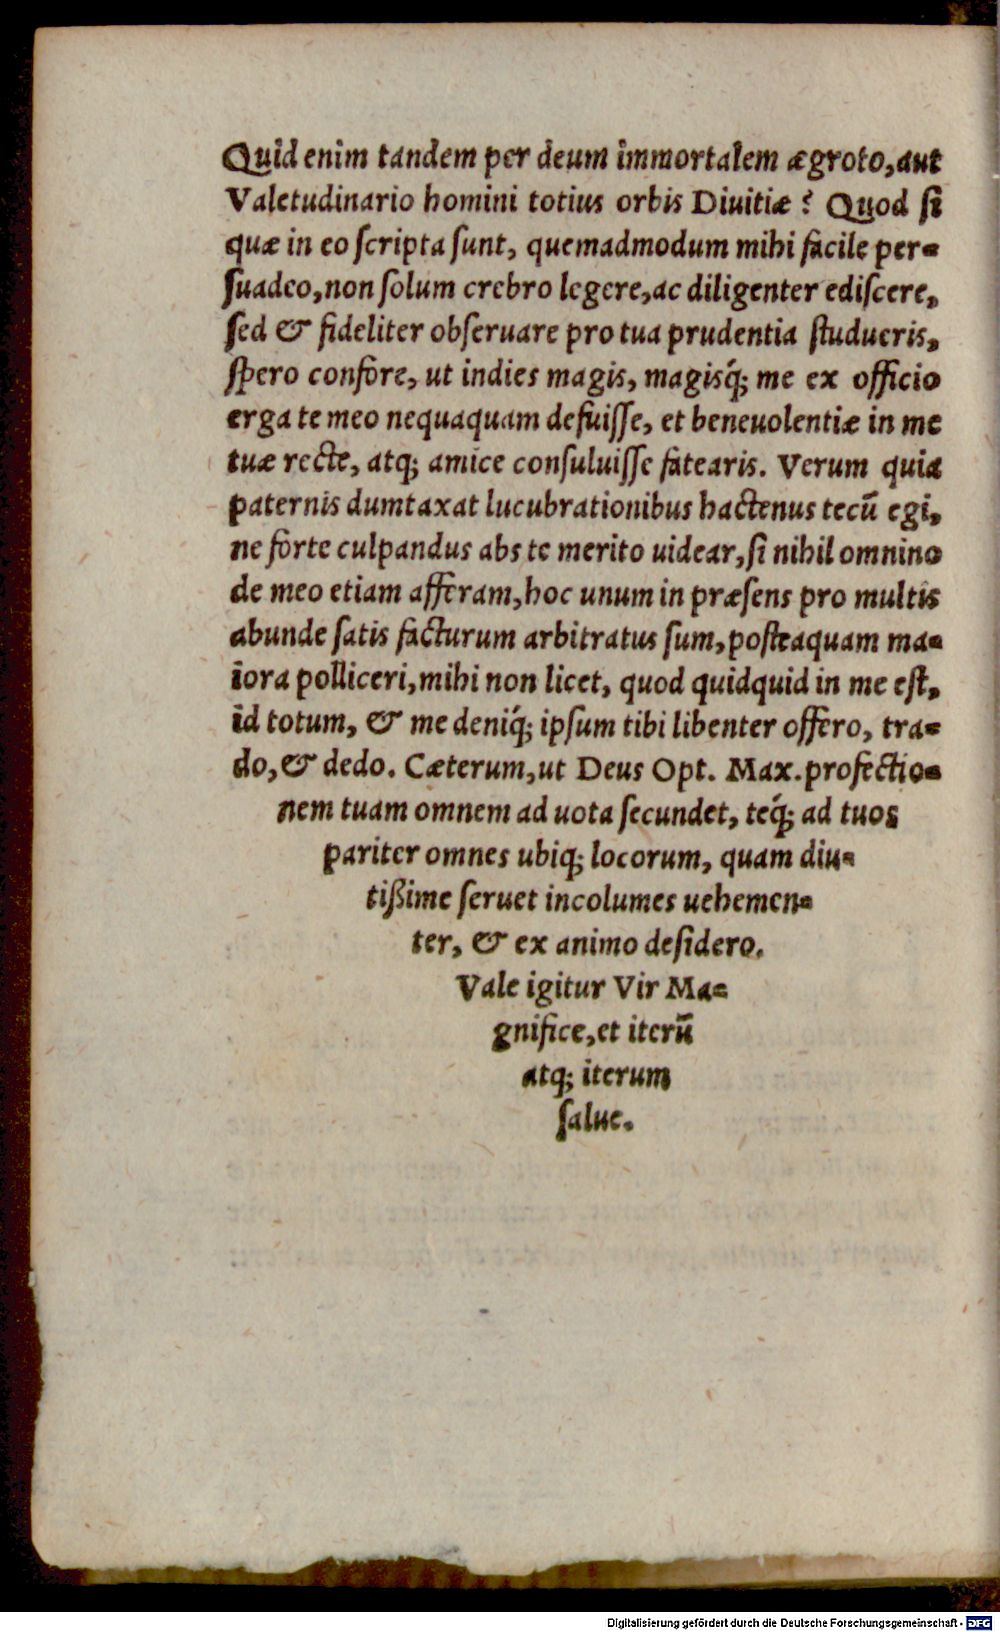 Quid enim tandem per deum immortalem ægroto, aut
Valetudinario homini totius orbis Diuitiæ? Quod ſi
quæ in eo ſcripta ſunt, quemadmodum mihi facile per-
ſuadeo, non ſolum crebro legere, ac diligenter ediſcere,
ſed & fideliter obſeruare pro tua prudentia ſtudueris,
ſpero confore, ut indies magis, magisq́; me ex officio
erga te meo nequaquam defuiſſe, et beneuolentiæ in me
tuæ recte, atq; amice conſuluiſſe fatearis. Verum quia
paternis dumtaxat lucubrationibus hactenus tecū egi,
ne forte culpandus abs te merito uidear, ſi nihil omnino
de meo etiam afferam, hoc unum in præſens pro multis
abunde ſatis facturum arbitratus ſum, poſteaquam ma-
iora polliceri, mihi non licet, quod quidquid in me eſt,
id totum, & me deniq́; ipſum tibi libenter offero, tra-
do, & dedo. Cæterum, ut Deus Opt. Max. profectio-
nem tuam omnem ad uota ſecundet, teq́; ad tuos
pariter omnes ubiq; locorum, quam diu-
tißime ſeruet incolumes uehemen-
ter, & ex animo deſidero.
Vale igitur Vir Ma-
gnifice, et iterū
atq; iterum
ſalue.
Digitalisierung gefördert durch die Deutsche Forschungsgemeinschaft - DFG